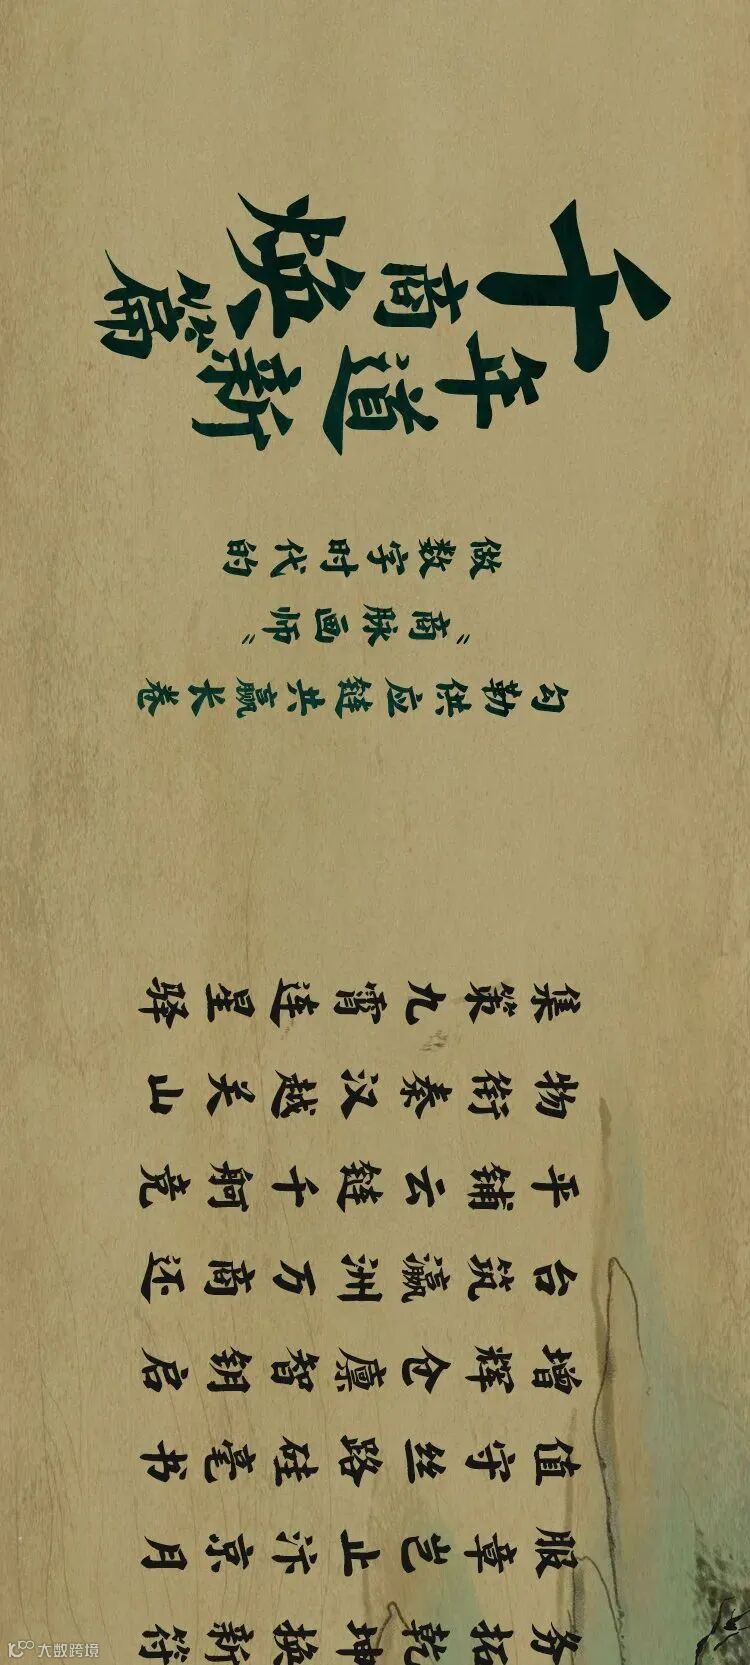 千年商道焕新篇
做数字时代的
“商脉画师”
勾勒供应链共赢长卷
集策九霄连星驿
物衔秦汉越关山
平铺云链千舸竞
台筑瀛洲万商还
增辉仓廪智钥启
值守丝路硅毫书
服章岂止汴京月
务拓乾坤换新符
大数跨境